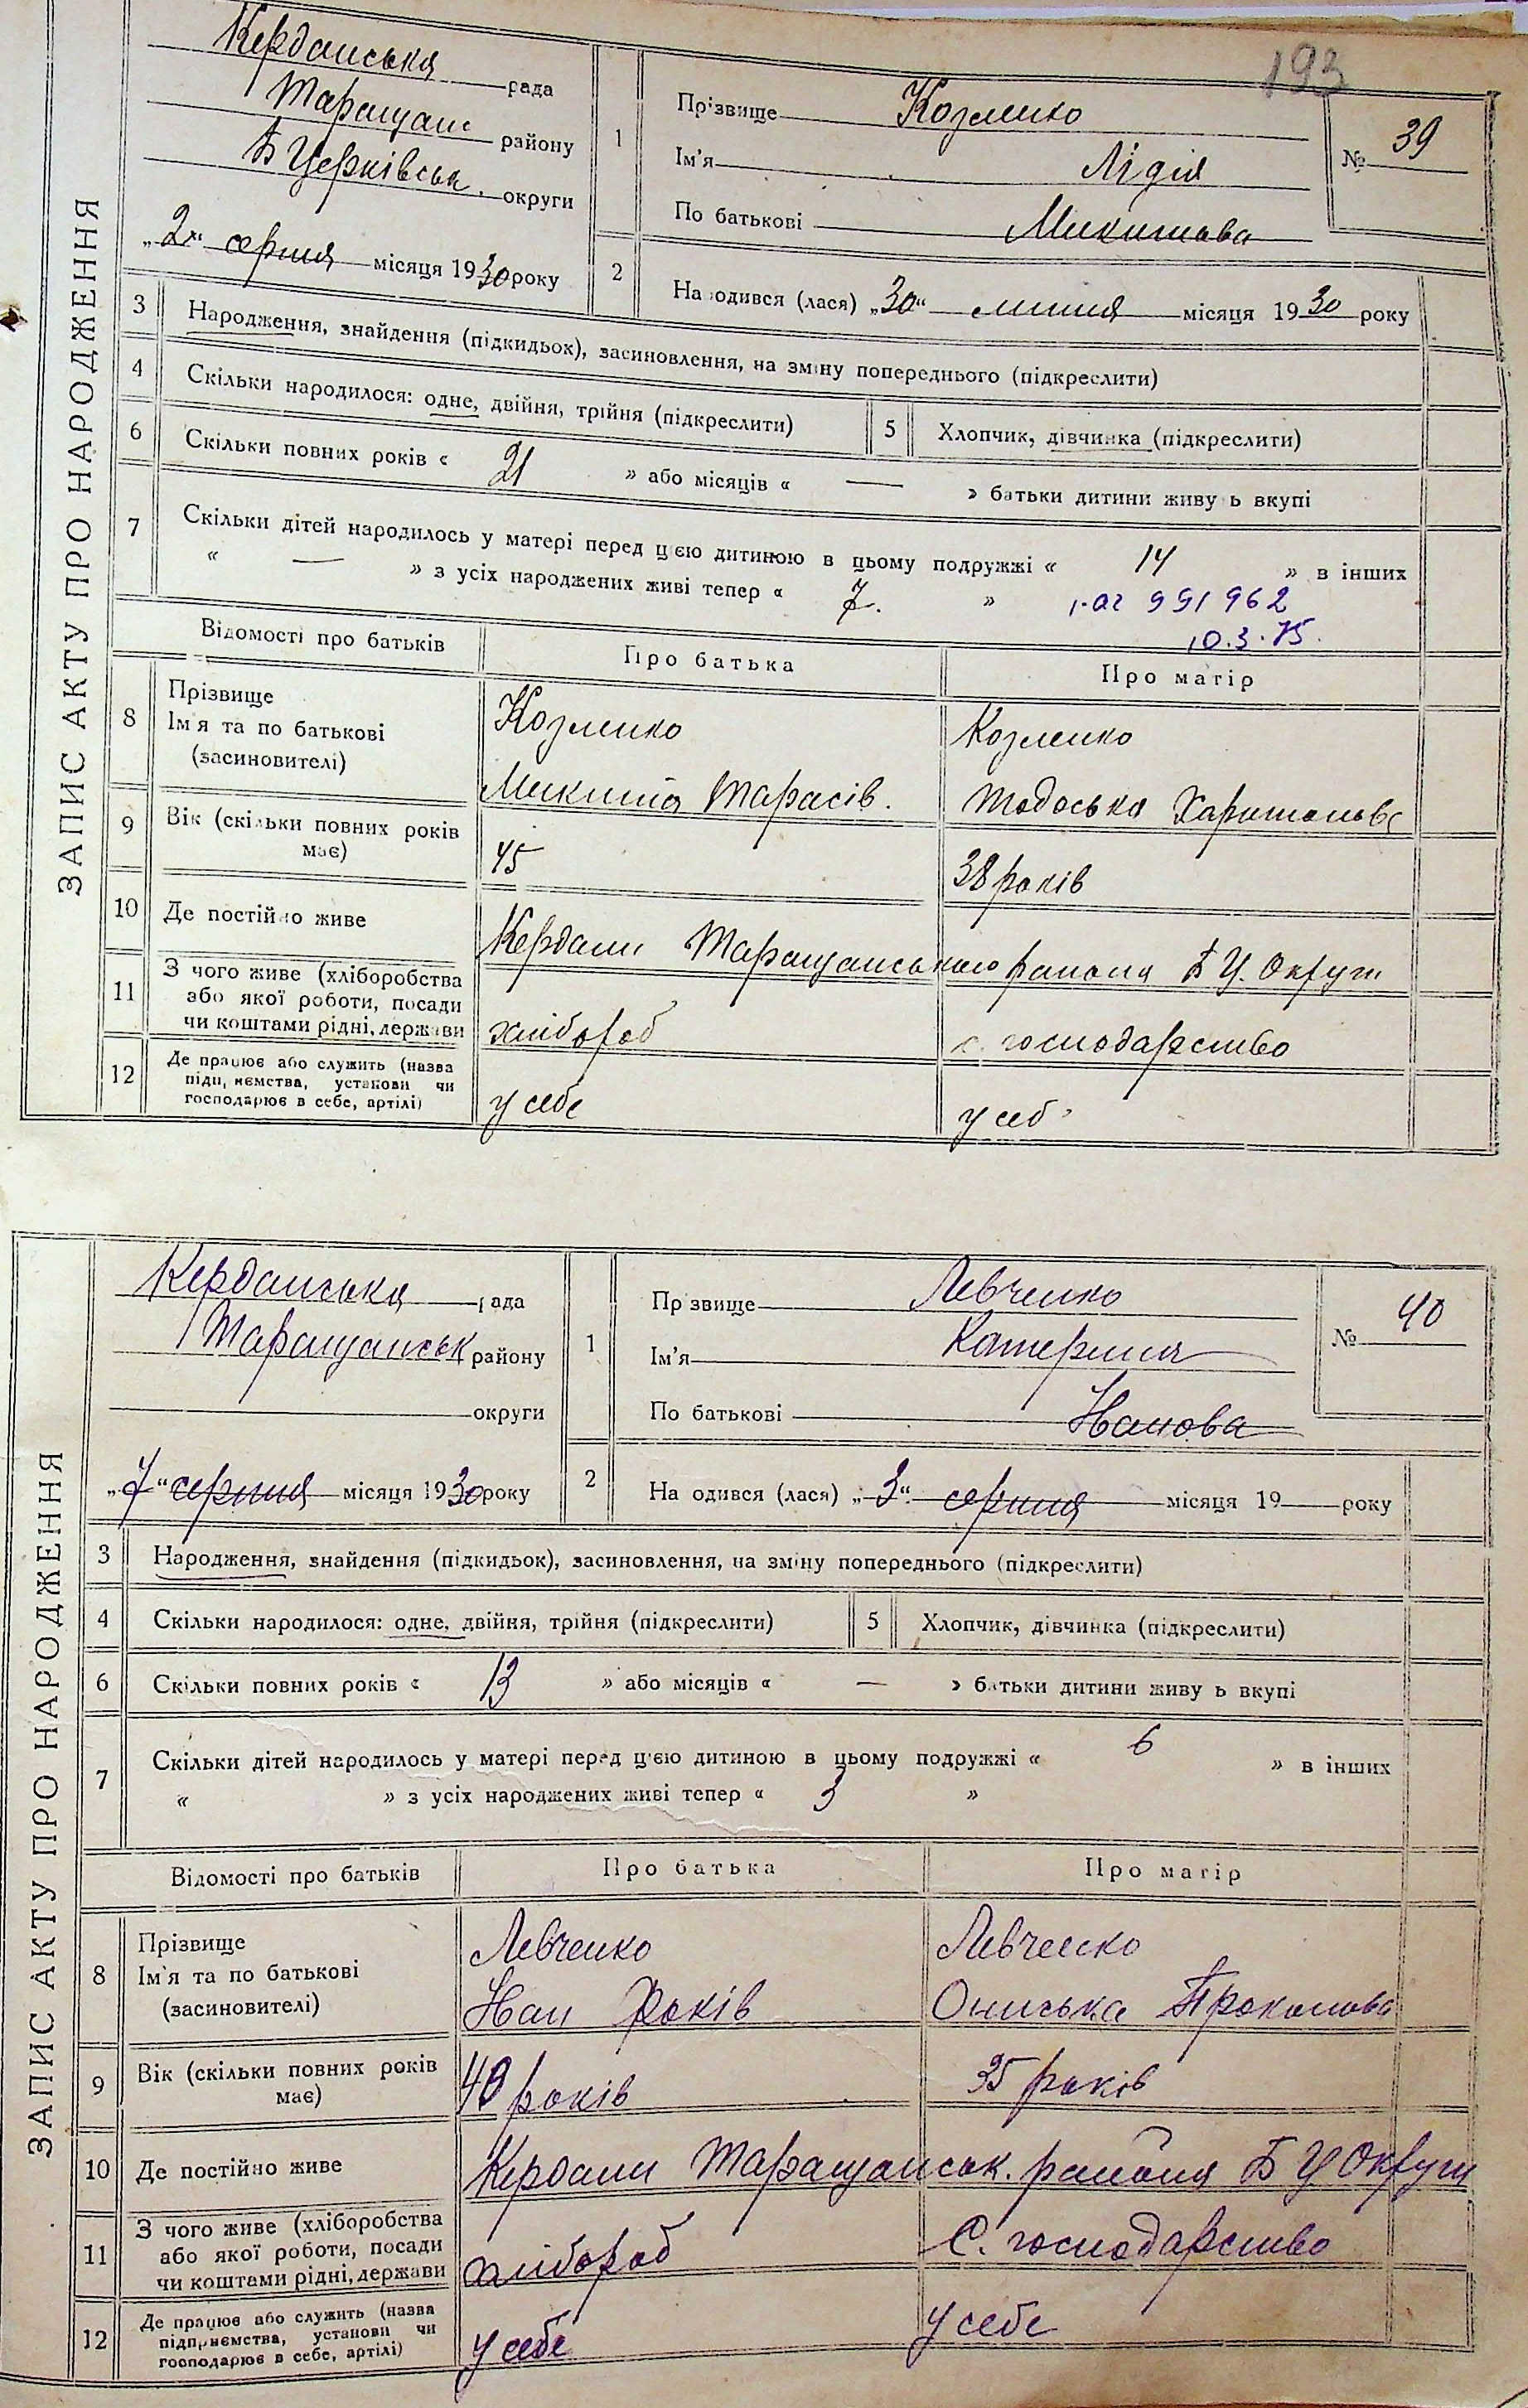 193
ЗАПИС АКТУ ПРО НАРОДЖЕННЯ
Керданська рада
Таращанс району
Б Церківськ. округи
„2“ серпня місяця 1930 року
1
Прізвище Козленко
Ім'я Лідія
По батькові Микитова
№ 39
2
Народився (лася) „30“ липня місяця 1930 року
3 Народження, знайдення (підкидьок), засиновлення, на зміну попереднього (підкреслити)
4 Скільки народилося: одне, двійня, трійня (підкреслити) 5 Хлопчик, дівчинка (підкреслити)
6 Скільки повних років « 21 » або місяців « — » батьки дитини живуть вкупі
7 Скільки дітей народилось у матері перед цією дитиною в цьому подружжі « 14 » в інших
« — » з усіх народжених живі тепер « 7. »
991962
10.3.75.
Відомості про батьків Про батька Про матір
8 Прізвище Ім'я та по батькові (засиновителі)
Козленко Козленко
Микита Тарасів. Тодоська Харитонова
9 Вік (скільки повних років має) 45 38 років
10 Де постійно живе Кердани Таращанського района Б Ц. Округи
11 З чого живе (хліборобства або якої роботи, посади чи коштами рідні, держави хлібороб с. господарство
12 Де працює або служить (назва підприємства, установи чи господарює в себе, артілі) у себе у себ
ЗАПИС АКТУ ПРО НАРОДЖЕННЯ
Керданська рада
Таращанськ району
округи
„7“ серпня місяця 1930 року
1
Прізвище Левченко
Ім'я Катерина
По батькові Іванова
№ 40
2
Народився (лася) „3“ серпня місяця 19 року
3 Народження, знайдення (підкидьок), засиновлення, на зміну попереднього (підкреслити)
4 Скільки народилося: одне, двійня, трійня (підкреслити) 5 Хлопчик, дівчинка (підкреслити)
6 Скільки повних років « 13 » або місяців « — » батьки дитини живуть вкупі
7 Скільки дітей народилось у матері перед цією дитиною в цьому подружжі « 6 » в інших
« » з усіх народжених живі тепер « 3 »
Відомості про батьків Про батька Про матір
8 Прізвище Ім'я та по батькові (засиновителі)
Левченко Левченко
Іван Фоків Ониська Прокопова
9 Вік (скільки повних років має) 40 років 35 років
10 Де постійно живе Кердани Таращанськ. района Б Ц Округи
11 З чого живе (хліборобства або якої роботи, посади чи коштами рідні, держави хлібороб С. господарство
12 Де працює або служить (назва підприємства, установи чи господарює в себе, артілі) у себе у себе